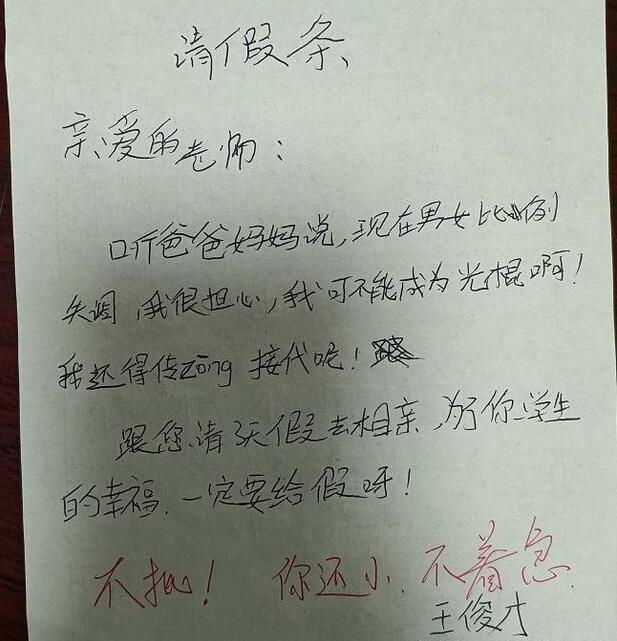 请假条
亲爱的老师：
听爸爸妈妈说,现在男女比例
失调,我很担心,我可不能成为光棍啊！
我还得传zōng接代呢！
跟您请3天假去相亲,为了你学生
的幸福.一定要给假呀！
不批！ 你还小.不着急.
王俊才